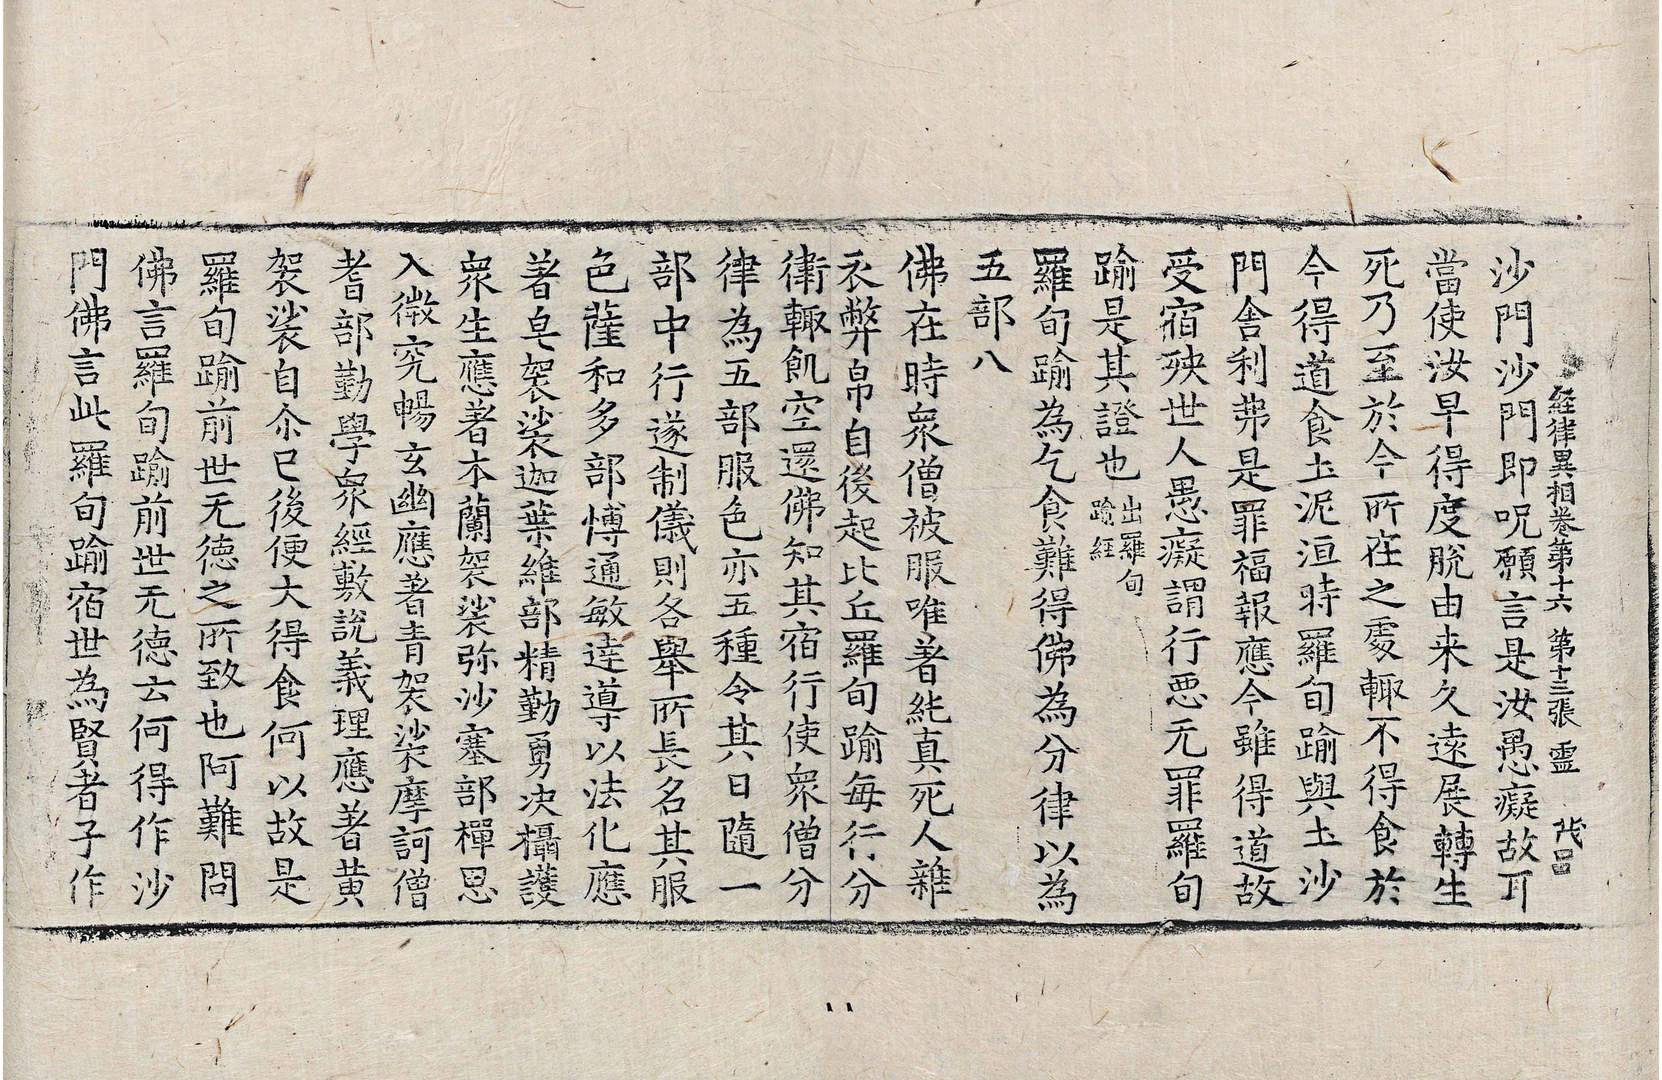 経律異相卷第十六 第十三張 霊
沙門沙門即呪願言是汝愚癡故耳
當使汝早得度脫由来久遠展轉生
死乃至於今所在之處輙不得食於
今得道食土泥洹時羅旬踰與土沙
門舍利弗是罪福報應今雖得道故
受宿殃世人愚癡謂行惡无罪羅旬
踰是其證也出羅旬踰経
羅旬踰為乞食難得佛為分律以為
五部八
佛在時衆僧被服唯著純真死人雜
衣弊帛自後起比丘羅旬踰每行分
衛輙飢空還佛知其宿行使衆僧分
律為五部服色亦五種令其日隨一
部中行遂制儀則各舉所長名其服
色薩和多部博通敏達導以法化應
著皂袈裟迦葉維部精勤勇决攝護
衆生應著木蘭袈裟弥沙塞部禪思
入微究暢玄幽應著青袈裟摩訶僧
耆部勤學衆經敷說義理應著黄
袈裟自尒已後便大得食何以故是
羅旬踰前世无德之所致也阿難問
佛言羅旬踰前世无德云何得作沙
門佛言此羅旬踰宿世為賢者子作